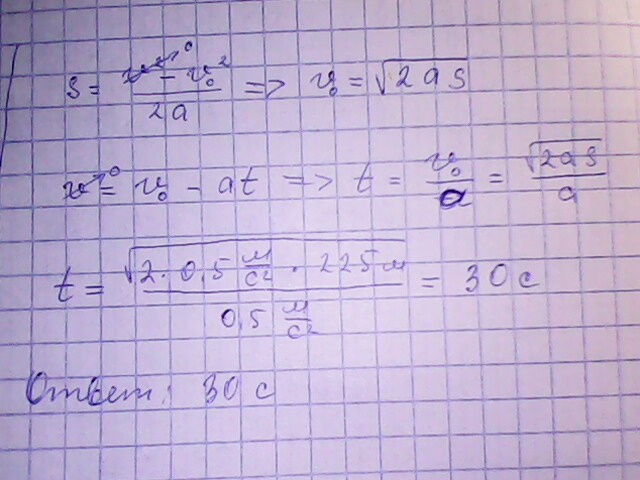 s = (v²→⁰ - v₀²) / 2a => v₀ = √2as
v→⁰ = v₀ - at => t = v₀ / a = √2as / a
t = √2 · 0,5 м/с² · 225 м / 0,5 м/с² = 30 с
Ответ: 30 с